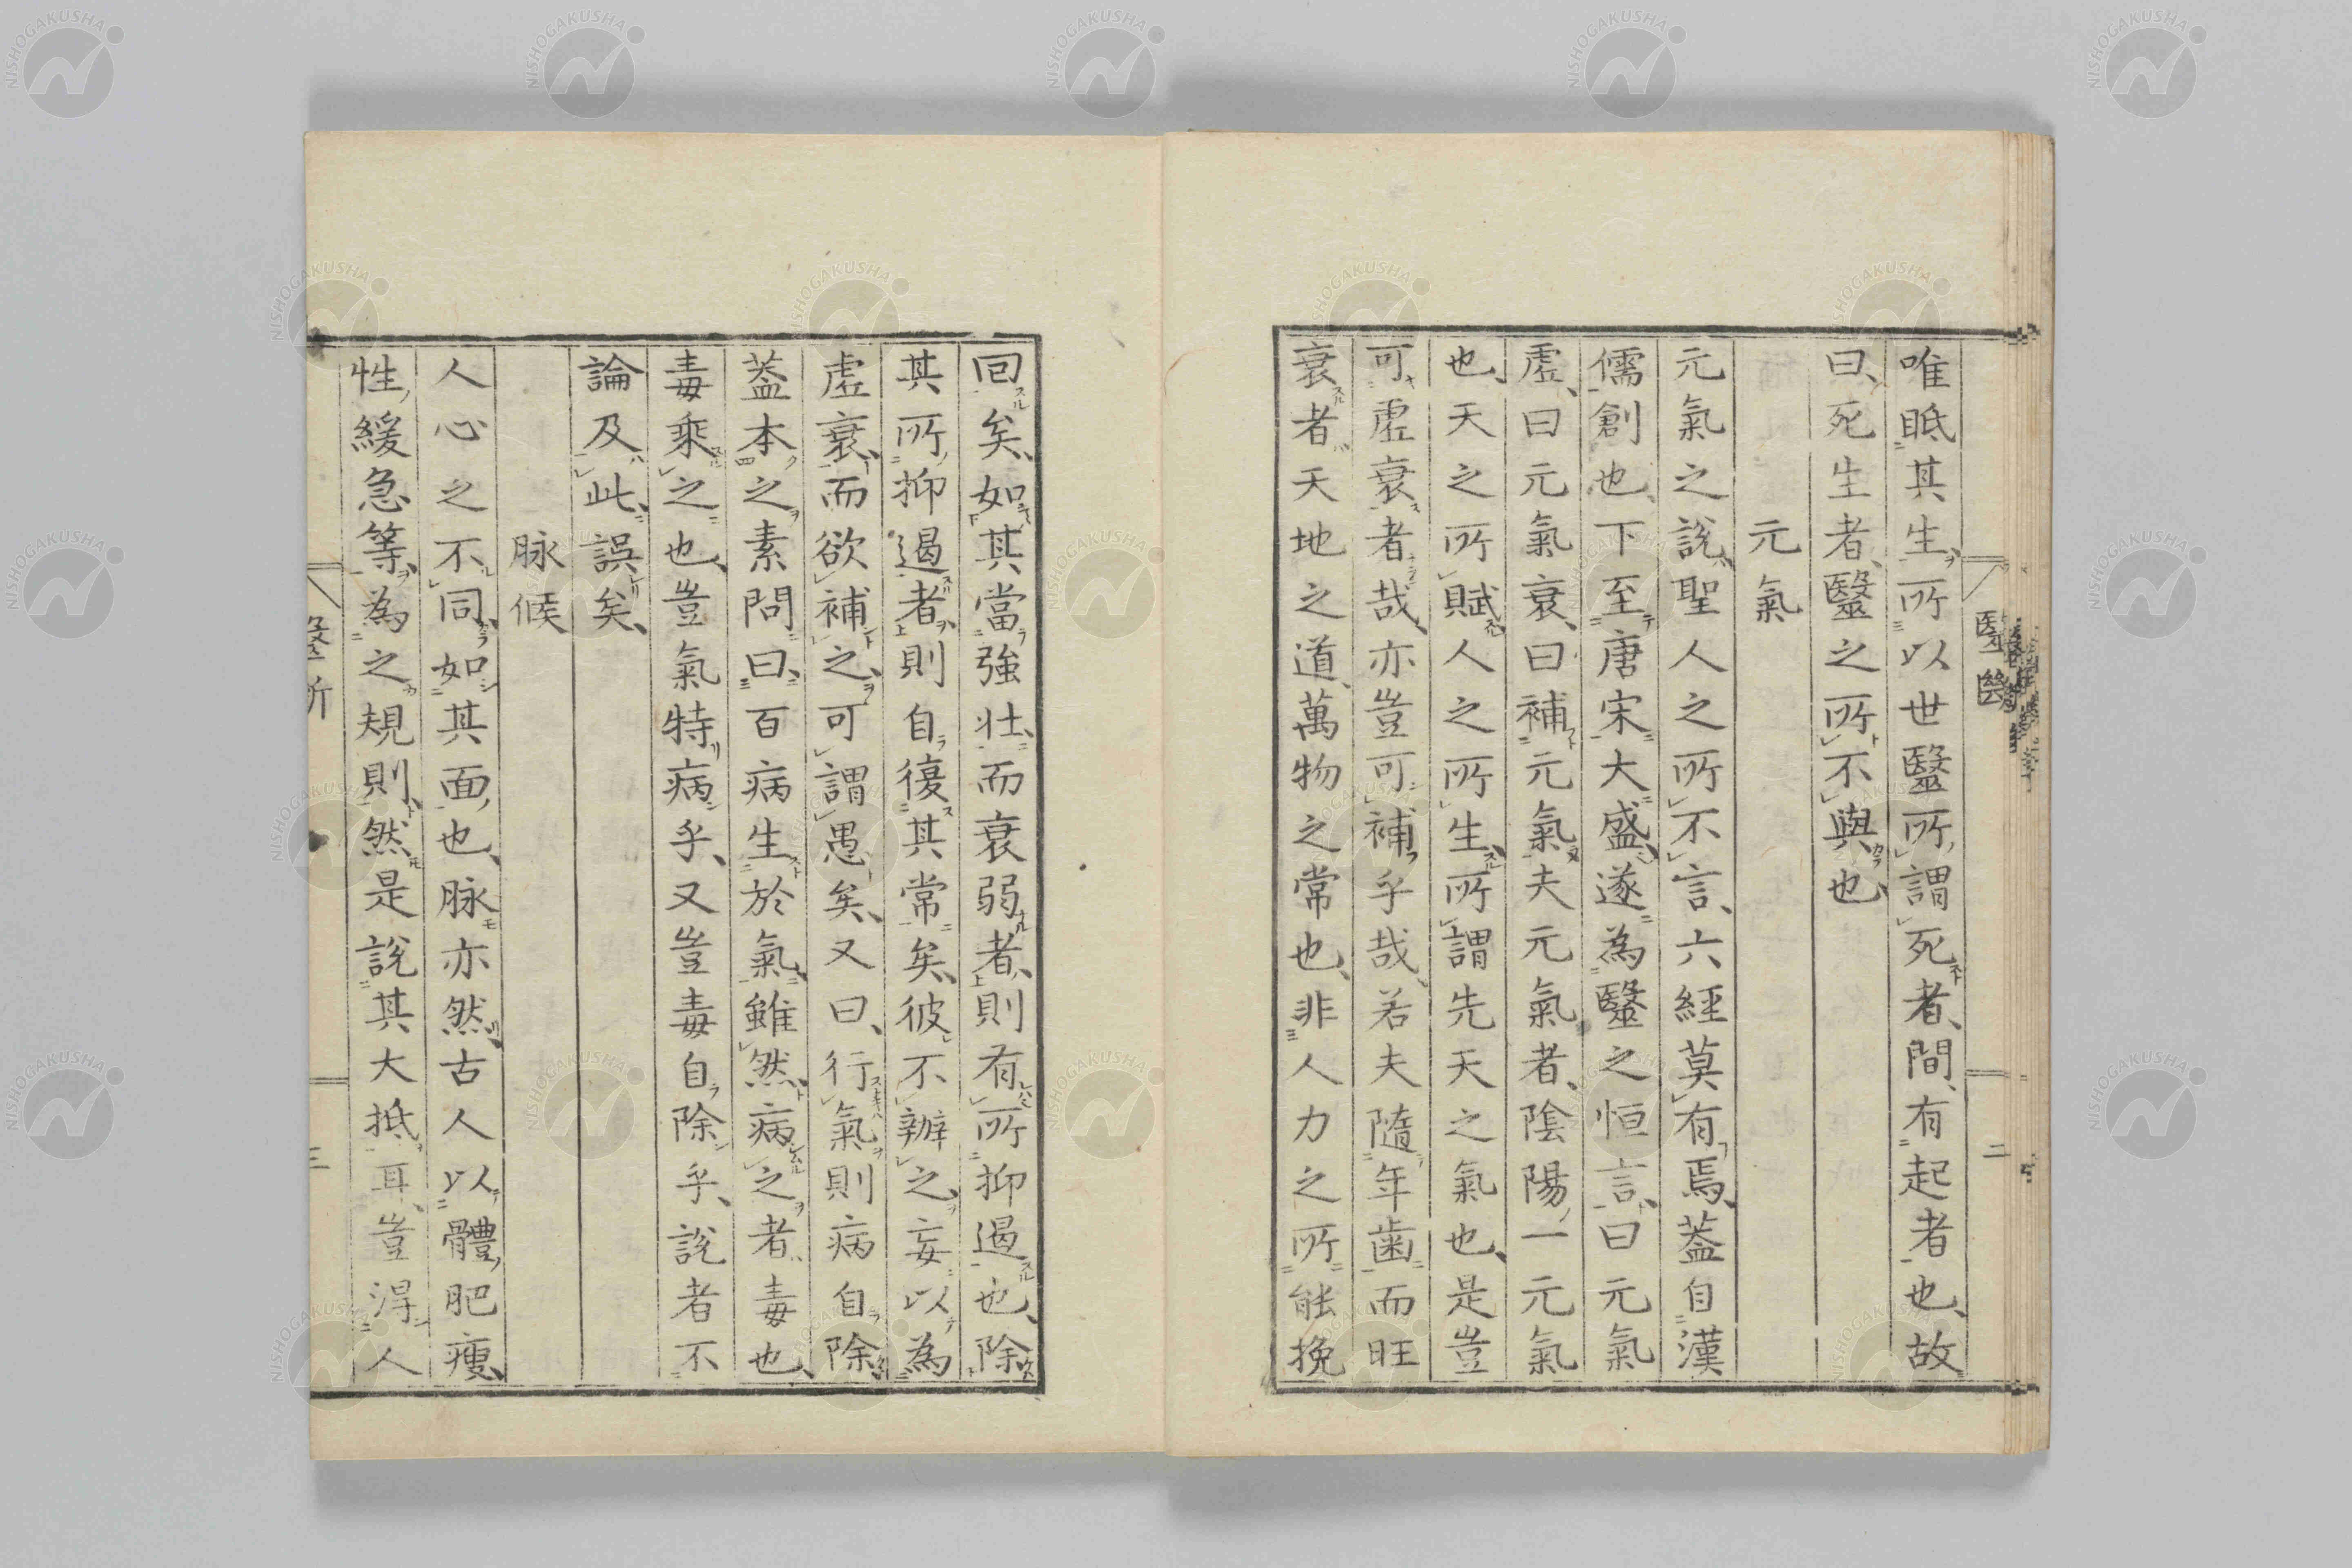 唯眡其生所以世醫所謂死者間有起者也故
曰死生者醫之所不與也
元氣
元氣之說聖人之所不言六經莫有焉蓋自漢
儒創也下至唐宋大盛遂為醫之恒言曰元氣
虛曰元氣衰曰補元氣夫元氣者陰陽一元氣
也天之所賦人之所生所謂先天之氣也是豈
可虛衰者哉亦豈可補乎哉若夫隨年歯而旺
衰者天地之道萬物之常也非人力之所能挽
回矣如其當強壮而衰弱者則有所抑遏也除
其所抑遏者則自復其常矣彼不辦之妄以為
虛衰而欲補之可謂愚矣又曰行氣則病自除
蓋本之素問曰百病生於氣雖然病之者毒也
毒乘之也豈氣特病乎又豈毒自除乎說者不
論及此誤矣
脉候
人心之不同如其面也脉亦然古人以體肥瘦
性緩急等為之規則然是說其大抵耳豈淂人
二
三
NISHOGAKUSHA